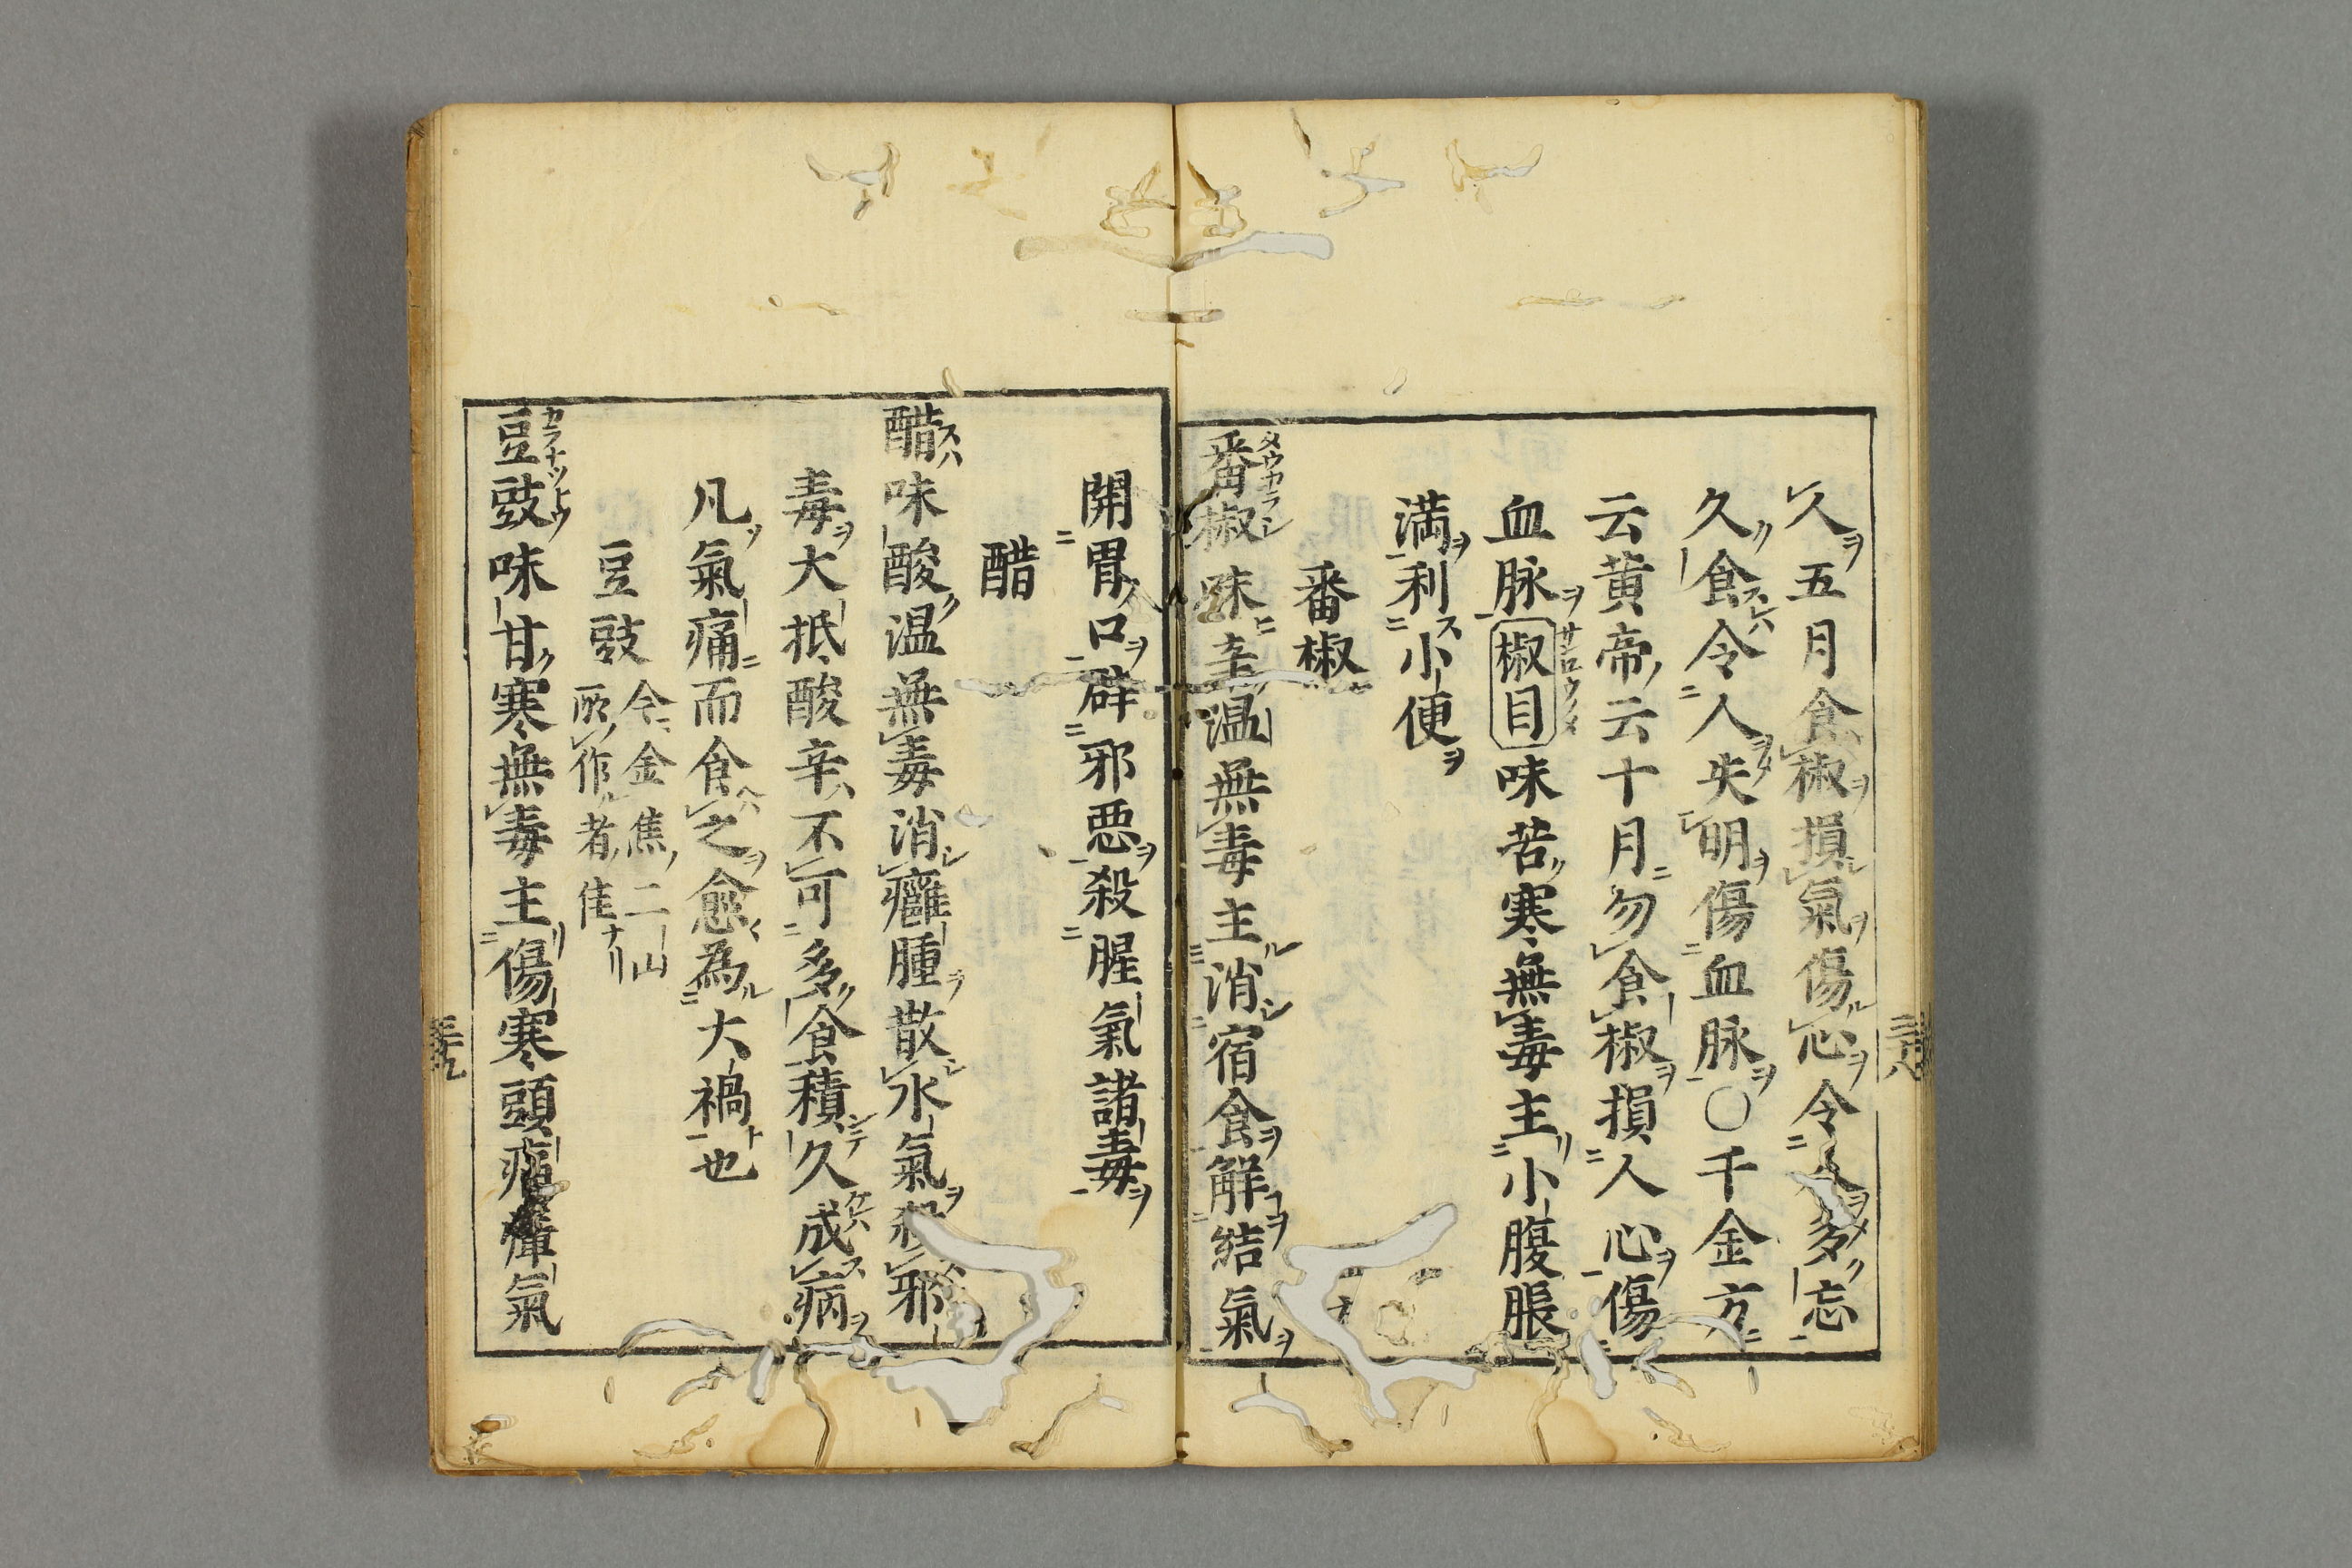 久五月食椒損氣傷心令人多忘
久食令人失明傷血脉○千金方
云黄帝云十月勿食椒損人心傷
血脉椒目味苦寒無毒主小腹脹
満利小便
番椒
番椒味辛温無毒主消宿食解結氣
開胃口辟邪悪殺腥氣諸毒
醋
醋味酸温無毒消癰腫散水氣殺邪
毒大抵酸辛不可多食積久成病
凡氣痛而食之愈為大禍也
豆豉令金焦二山
所作者佳
豆豉味甘寒無毒主傷寒頭痛瘴氣